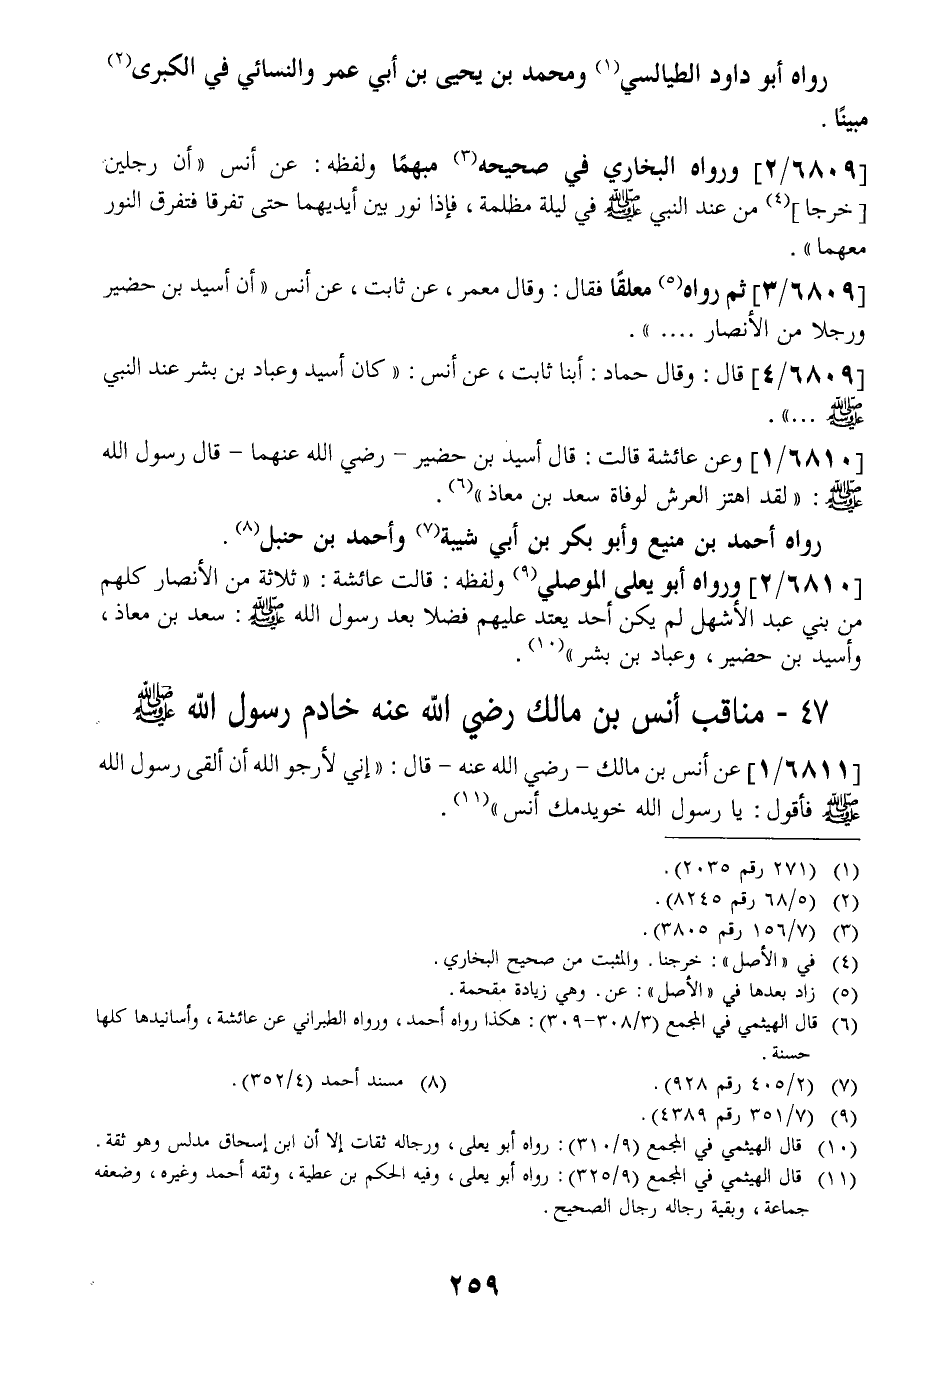 رواه أبو داود الطيالسي(١) ومحمد بن يحيى بن أبي عمر والنسائي في الكبرى(٢)
مبينًا .
[٢/٦٨٠٩] ورواه البخاري في صحيحه(٣) مبهمًا ولفظه : عن أنس « أن رجلين
[ خرجا ](٤) من عند النبي ﷺ في ليلة مظلمة ، فإذا نور بين أيديهما حتى تفرقا فتفرق النور
معهما » .
[٣/٦٨٠٩] ثم رواه(٥) معلقًا فقال : وقال معمر ، عن ثابت ، عن أنس « أن أسيد بن حضير
ورجلا من الأنصار .... » .
[٤/٦٨٠٩] قال : وقال حماد : أبنا ثابت ، عن أنس : « كان أسيد وعباد بن بشر عند النبي
ﷺ ...» .
[١/٦٨١٠] وعن عائشة قالت : قال أسيد بن حضير – رضي الله عنهما – قال رسول الله
ﷺ : « لقد اهتز العرش لوفاة سعد بن معاذ »(٦) .
رواه أحمد بن منيع وأبو بكر بن أبي شيبة(٧) وأحمد بن حنبل(٨) .
[٢/٦٨١٠] ورواه أبو يعلى الموصلي(٩) ولفظه : قالت عائشة : « ثلاثة من الأنصار كلهم
من بني عبد الأشهل لم يكن أحد يعتد عليهم فضلا بعد رسول الله ﷺ : سعد بن معاذ ،
وأسيد بن حضير ، وعباد بن بشر »(١٠) .
٤٧ - مناقب أنس بن مالك رضي الله عنه خادم رسول الله ﷺ
[١/٦٨١١] عن أنس بن مالك – رضي الله عنه – قال : « إني لأرجو الله أن ألقى رسول الله
ﷺ فأقول : يا رسول الله خويدمك أنس »(١١) .
(١) (٢٧١ رقم ٢٠٣٥) .
(٢) (٦٨/٥ رقم ٨٢٤٥) .
(٣) (١٥٦/٧ رقم ٣٨٠٥) .
(٤) في «الأصل» : خرجنا . والمثبت من صحيح البخاري .
(٥) زاد بعدها في «الأصل» : عن . وهي زيادة مقحمة .
(٦) قال الهيثمي في المجمع (٣٠٨/٣-٣٠٩) : هكذا رواه أحمد ، ورواه الطبراني عن عائشة ، وأسانيدها كلها
حسنة .
(٧) (٤٠٥/٢ رقم ٩٢٨) . (٨) مسند أحمد (٣٥٢/٤) .
(٩) (٣٥١/٧ رقم ٤٣٨٩) .
(١٠) قال الهيثمي في المجمع (٣١٠/٩) : رواه أبو يعلى ، ورجاله ثقات إلا أن ابن إسحاق مدلس وهو ثقة .
(١١) قال الهيثمي في المجمع (٣٢٥/٩) : رواه أبو يعلى ، وفيه الحكم بن عطية ، وثقه أحمد وغيره ، وضعفه
جماعة ، وبقية رجاله رجال الصحيح .
٢٥٩